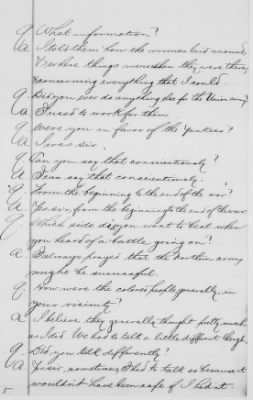 Q What information?
A I told them how the enemies laid around
& where things were when they were there,
concerning everything that I could.
Q Did you ever do anything else for the Union army?
A I used to work for them.
Q Were you in favor of the Yankees?
A I was sir.
Q Can you say that conscientiously?
A I can say that conscientiously.
Q From the beginning to the end of the war?
A Yes sir, from the beginning to the end of the war.
Q Which side did you want to beat when
you heard of a battle going on?
A I always prayed that the northern army
might be successful.
Q How were the colored people generally in
your vicinity?
A I believe they generally thought pretty much
as I did. We had to talk a little different though.
Q Did you talk differently?
A Yes sir, sometimes I had to talk so because it
wouldn't have been safe if I had not.